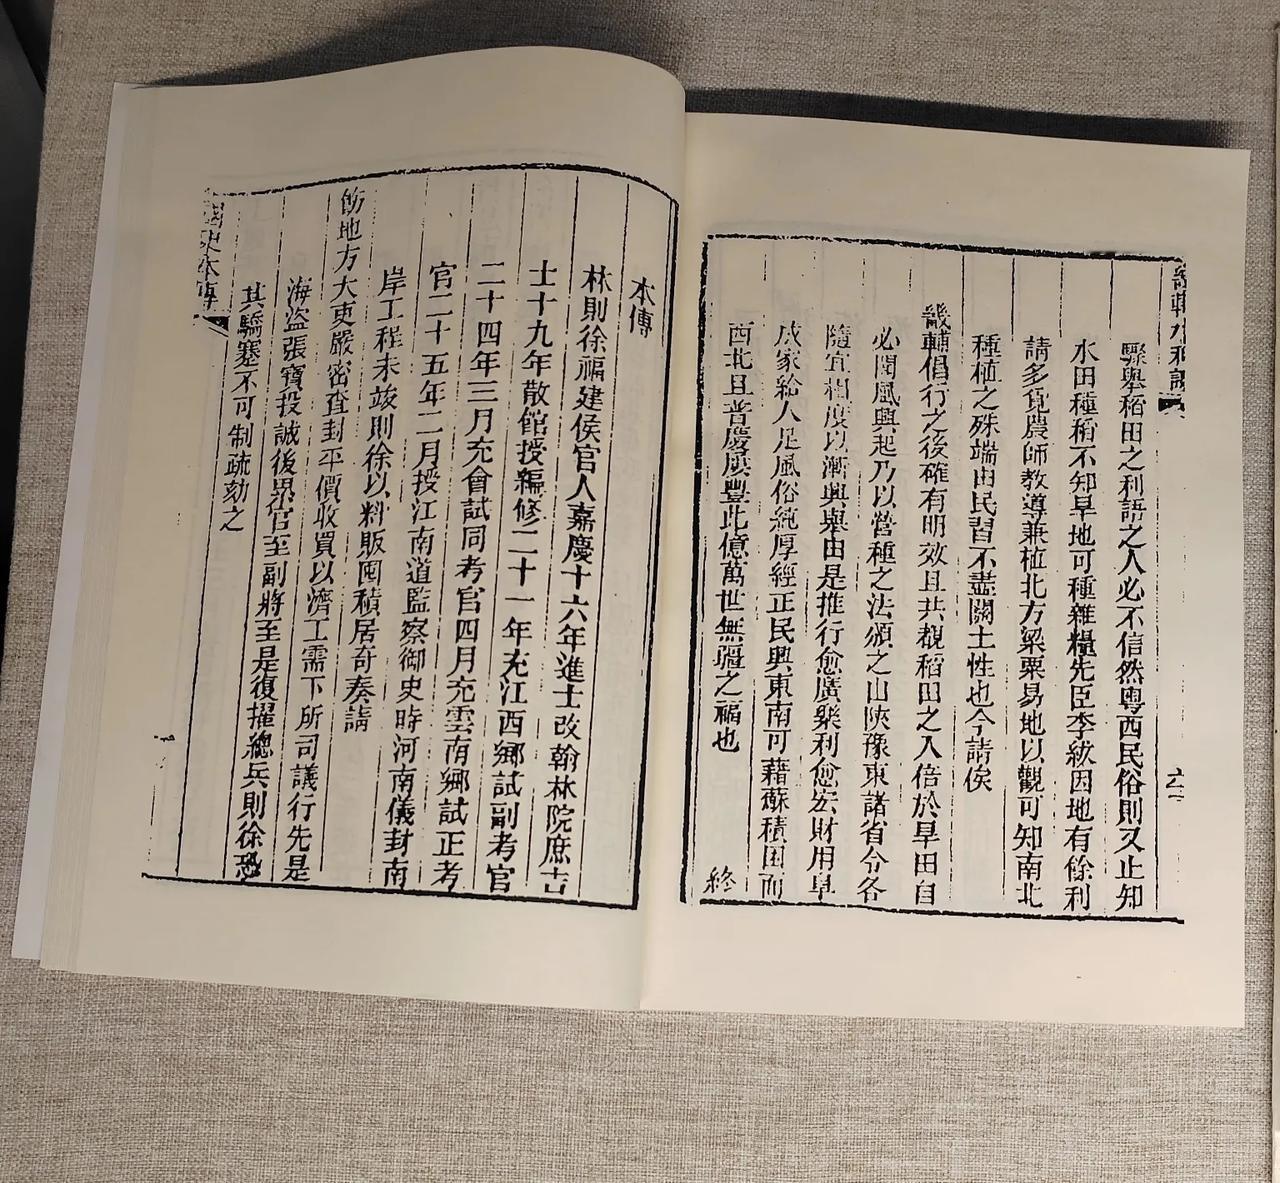 畿輔水利議
驟舉稻田之利語之人必不信然粵西民俗則又止知
水田種稻不知旱地可種雜糧先臣李紱因地有餘利
請多覓農師教導兼植北方粱粟易地以觀可知南北
種植之殊端由民習不盡關土性也今請俟
畿輔倡行之後確有明效且共觀稻田之入倍於旱田自
必聞風興起乃以營種之法頒之山陝豫東諸省令各
隨宜相度以漸興舉由是推行愈廣樂利愈宏財用阜
成家給人足風俗純厚經正民興東南可藉蘇積困而
西北且普慶屢豐此億萬世無疆之福也
終
本傳
林則徐福建侯官人嘉慶十六年進士改翰林院庶吉
士十九年散館授編修二十一年充江西鄉試副考官
二十四年三月充會試同考官四月充雲南鄉試正考
官二十五年二月授江南道監察御史時河南儀封南
岸工程未竣則徐以料販囤積居奇奏請
飭地方大吏嚴密查封平價收買以濟工需下所司議行先是
海盜張寶投誠後累官至副將至是復擢總兵則徐恐
其驕蹇不可制疏劾之
國史本傳